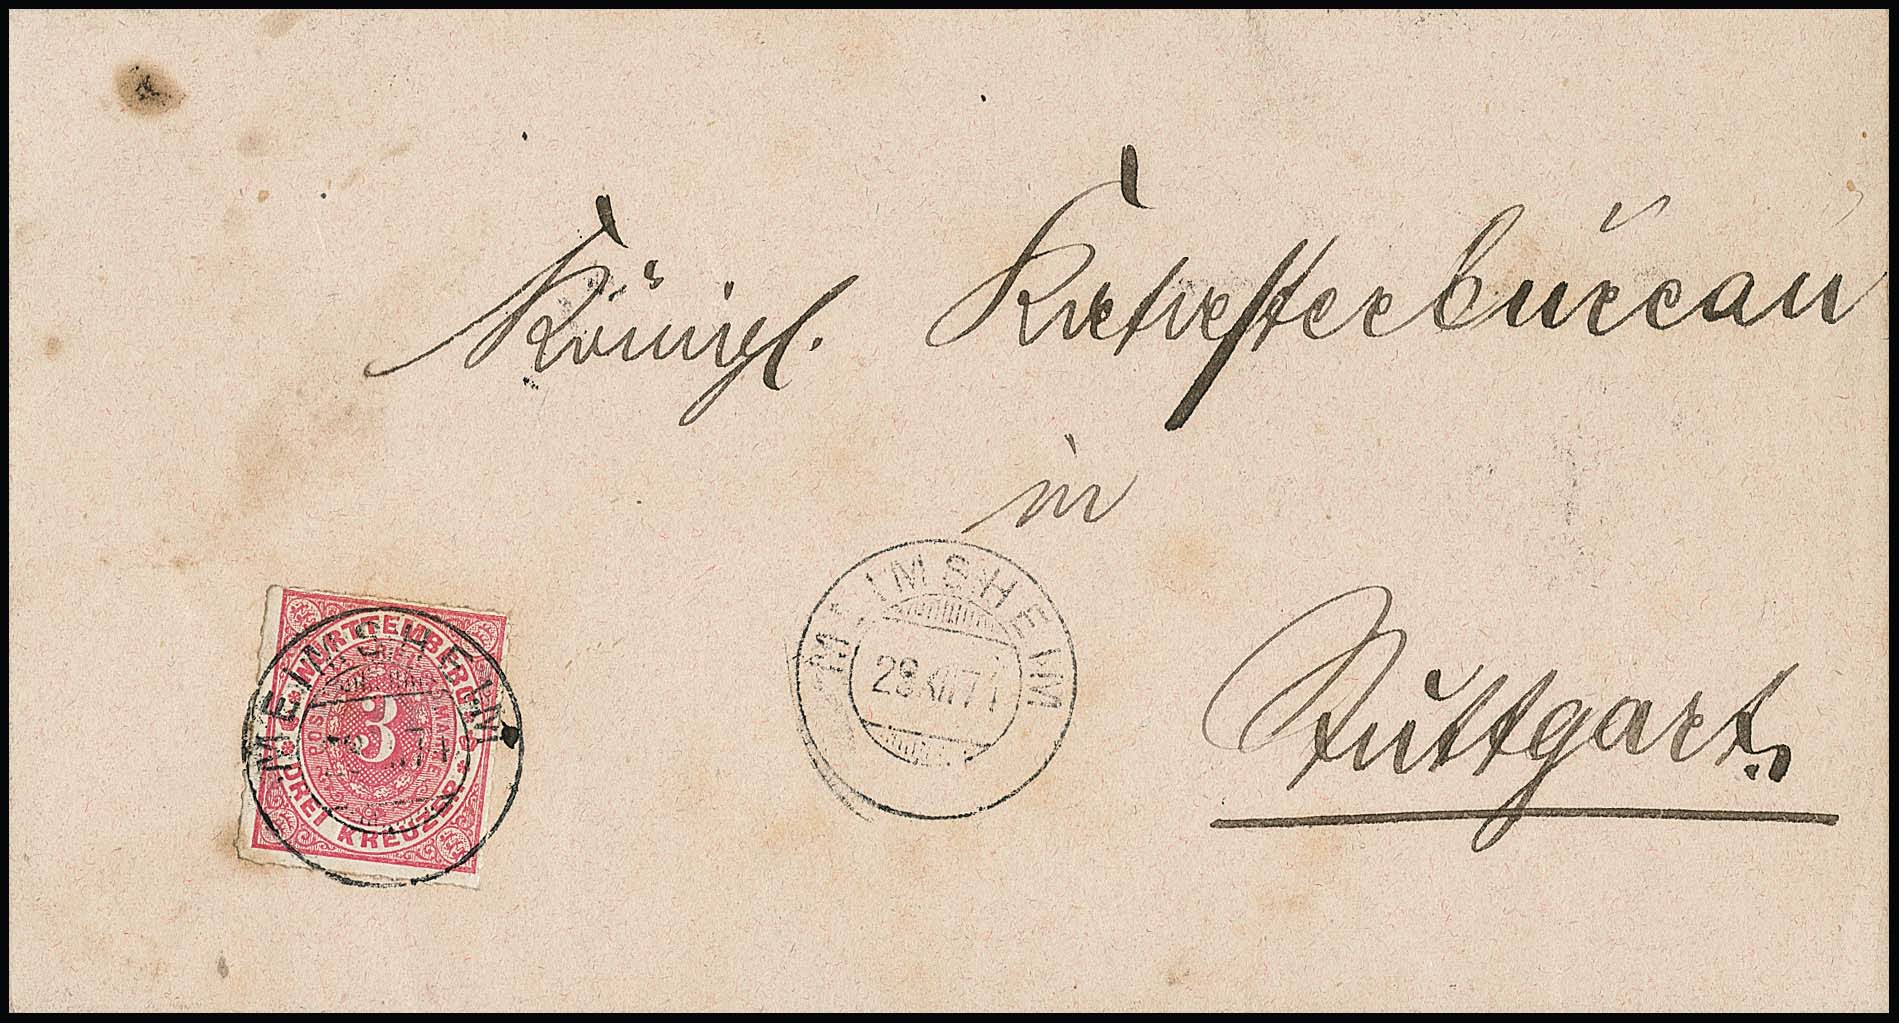 Königl. Katasterbureau
in
Stuttgart.
MEIMSHEIM
28 XII 71
WÜRTTEMBERG
POSTMARKE
3
DREI KREUZER
MEIMSHEIM